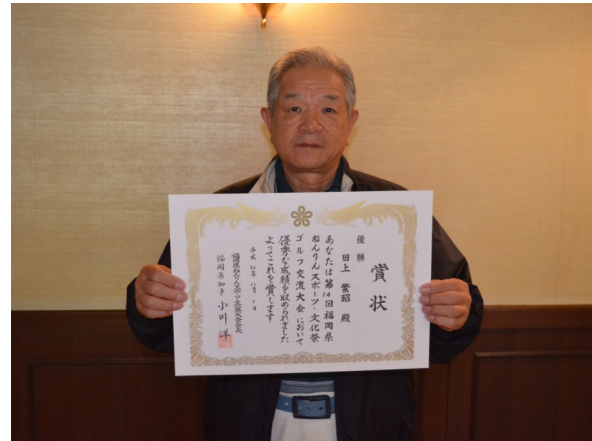 賞状
優勝
田上 繁昭 殿
あなたは第14回福岡県
ねんりんスポーツ・文化祭
ゴルフ交流大会において
優秀な成績を収められました
よってこれを賞します
平成
福岡県知事 小川 洋